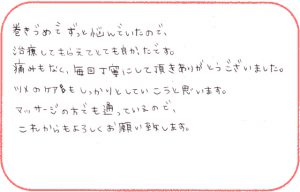 巻きづめでずっと悩んでいたので、
治療してもらえてとても良かったです。
痛みもなく、毎回丁寧にして頂きありがとうございました。
ツメのケアもしっかりとしていこうと思います。
マッサージの方でも通っているので、
これからもよろしくお願い致します。